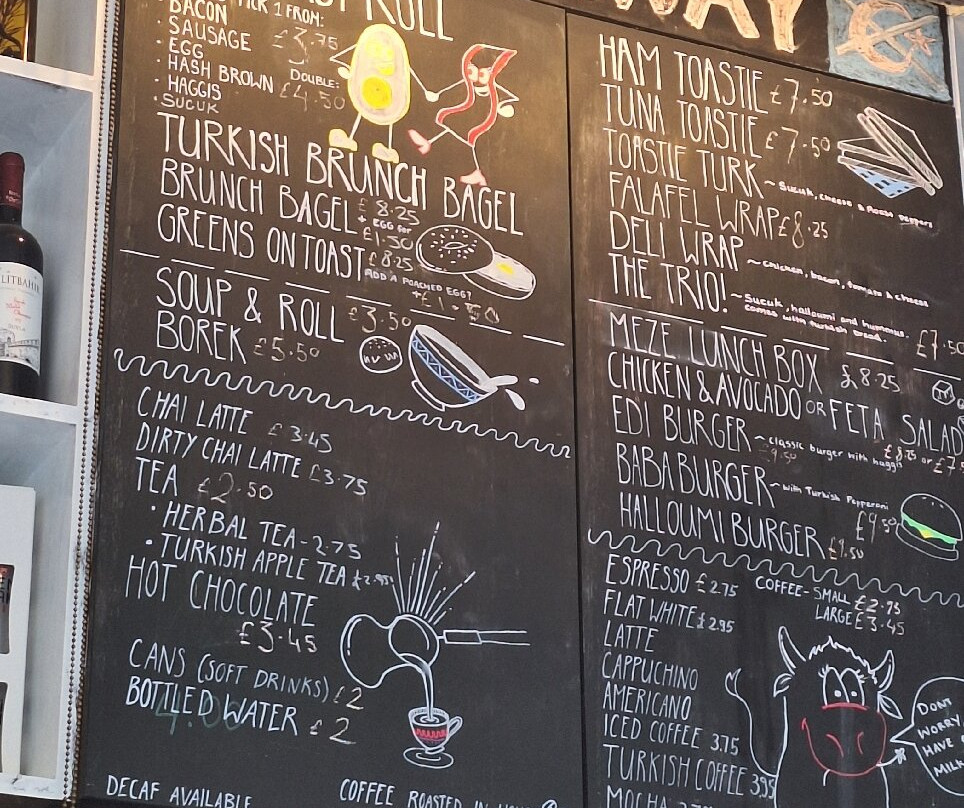 ROLL
PICK 1 FROM:
BACON
SAUSAGE £3.75
EGG
HASH BROWN DOUBLE:
HAGGIS £4.50
SUCUK
TURKISH BRUNCH BAGEL
BRUNCH BAGEL £8.25
+ EGG for £1.50
GREENS ON TOAST £8.25
ADD A POACHED EGG?
+£1.50
SOUP & ROLL £3.50
BOREK £5.50
CHAI LATTE £3.45
DIRTY CHAI LATTE £3.75
TEA £2.50
• HERBAL TEA - 2.75
• TURKISH APPLE TEA £2.95
HOT CHOCOLATE
£3.45
CANS (SOFT DRINKS) £2
BOTTLED WATER £2
DECAF AVAILABLE
COFFEE ROASTED IN
WAY
HAM TOASTIE £7.50
TUNA TOASTIE £7.50
TOASTIE TURK ~ Sucuk, cheese & Roast Peppers
FALAFEL WRAP £8.25
DELI WRAP ~ chicken, bacon, tomato & cheese
THE TRIO! ~ Sucuk, halloumi and hummus.
comes with turkish bread. £7.50
MEZE LUNCH BOX £8.25
CHICKEN & AVOCADO OR FETA SALAD
EDI BURGER ~ classic burger with haggis
£9.50
BABABURGER ~ with Turkish Pepperoni
£9.50
HALLOUMI BURGER £9.50
ESPRESSO £2.75
COFFEE - SMALL £2.75
LARGE £3.45
FLAT WHITE £2.95
LATTE
CAPPUCHINO
AMERICANO
ICED COFFEE 3.75
TURKISH COFFEE 3.95
MOCHA
DONT
WORRY,
HAVE
MILK